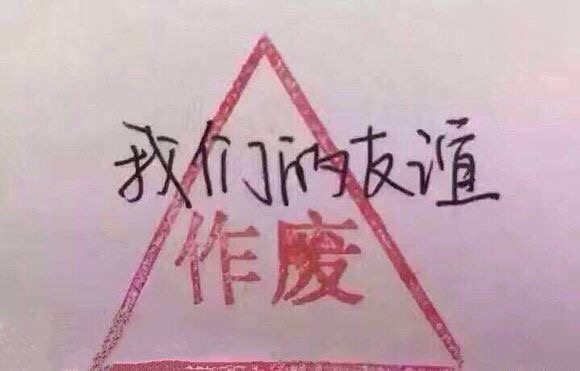 我们的友谊
作废